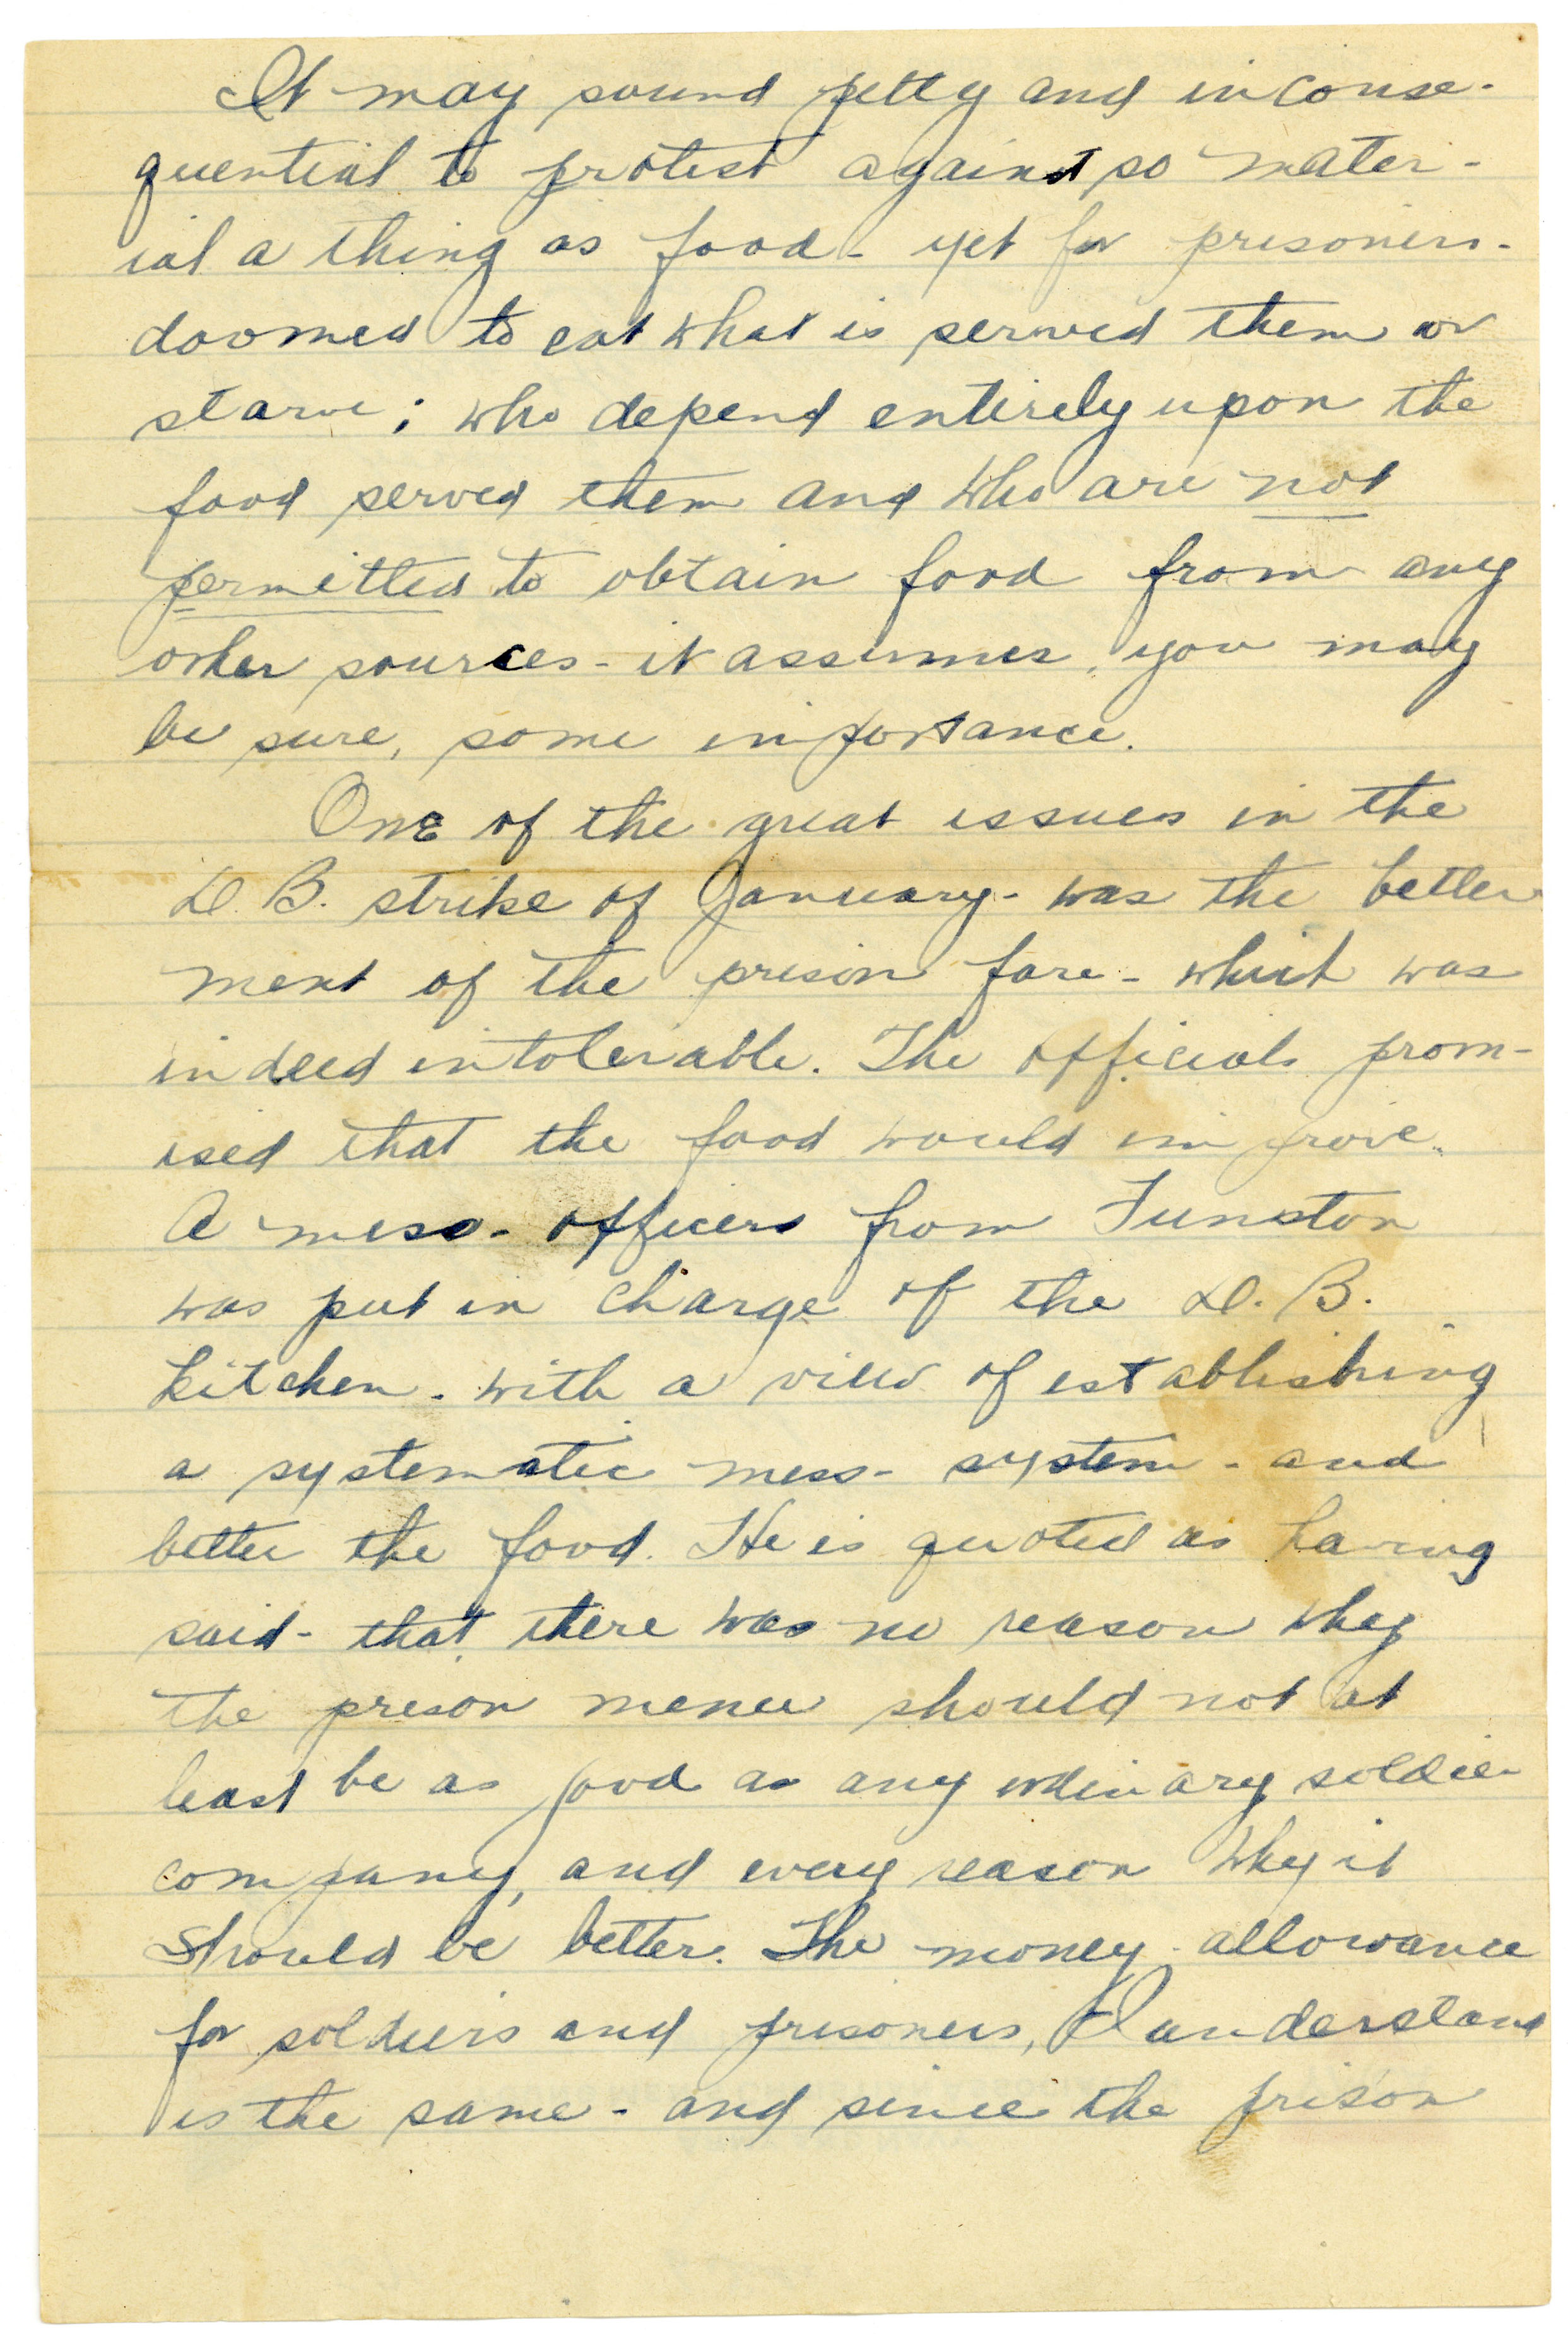 It may sound petty and inconse-
quential to protest against so mater-
ial a thing as food - yet for prisoners -
doomed to eat what is served them or
starve; who depend entirely upon the
food served them and who are not
permitted to obtain food from any
other sources - it assumes, you may
be sure, some importance.
One of the great issues in the
D.B. strike of January - was the better
ment of the prison fare - which was
indeed intolerable. The officials prom-
ised that the food would improve.
A mess - officers from Funston
was put in charge of the D.B.
kitchen - with a view of establishing
a systematic mess - system - and
better the food. He is quoted as having
said - that there was no reason why
the prison menu should not at
least be as good as any ordinary soldier
company, and every reason why it
should be better. The money - allowance
for soldiers and prisoners, I understand
is the same - and since the prison